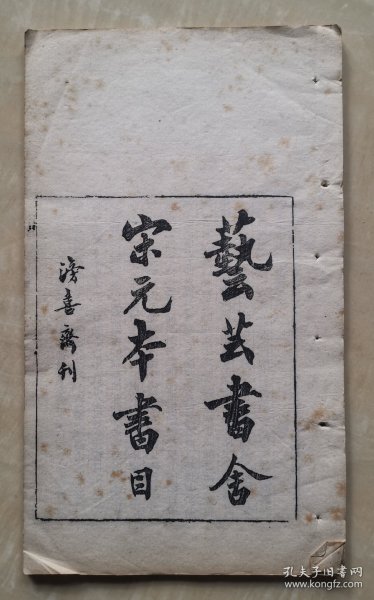 藝芸書舍
宋元本書目
滂喜齋刊
孔夫子旧书网
www.kongfz.com